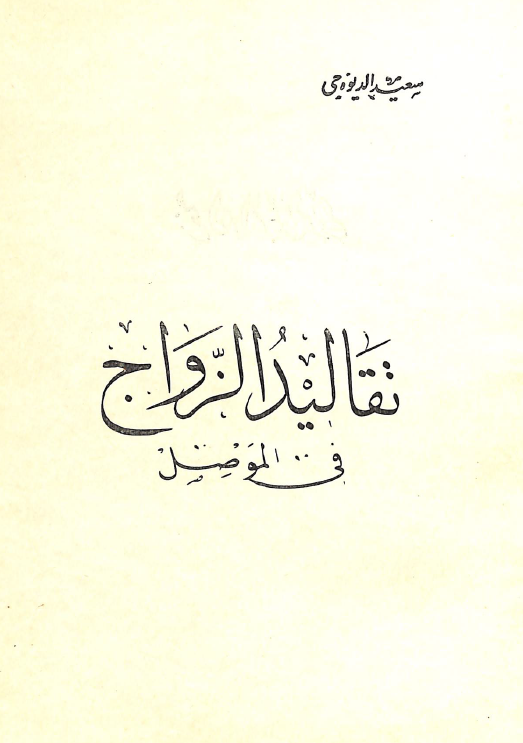 سعيد الديوه چي
تقاليد الزواج
في الموصل